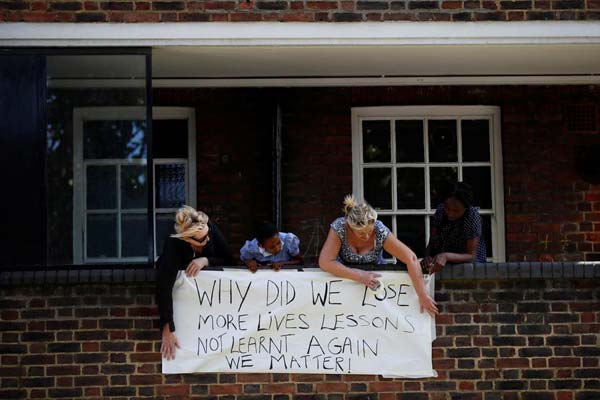 WHY DID WE LOSE
MORE LIVES LESSONS
NOT LEARNT AGAIN
WE MATTER!